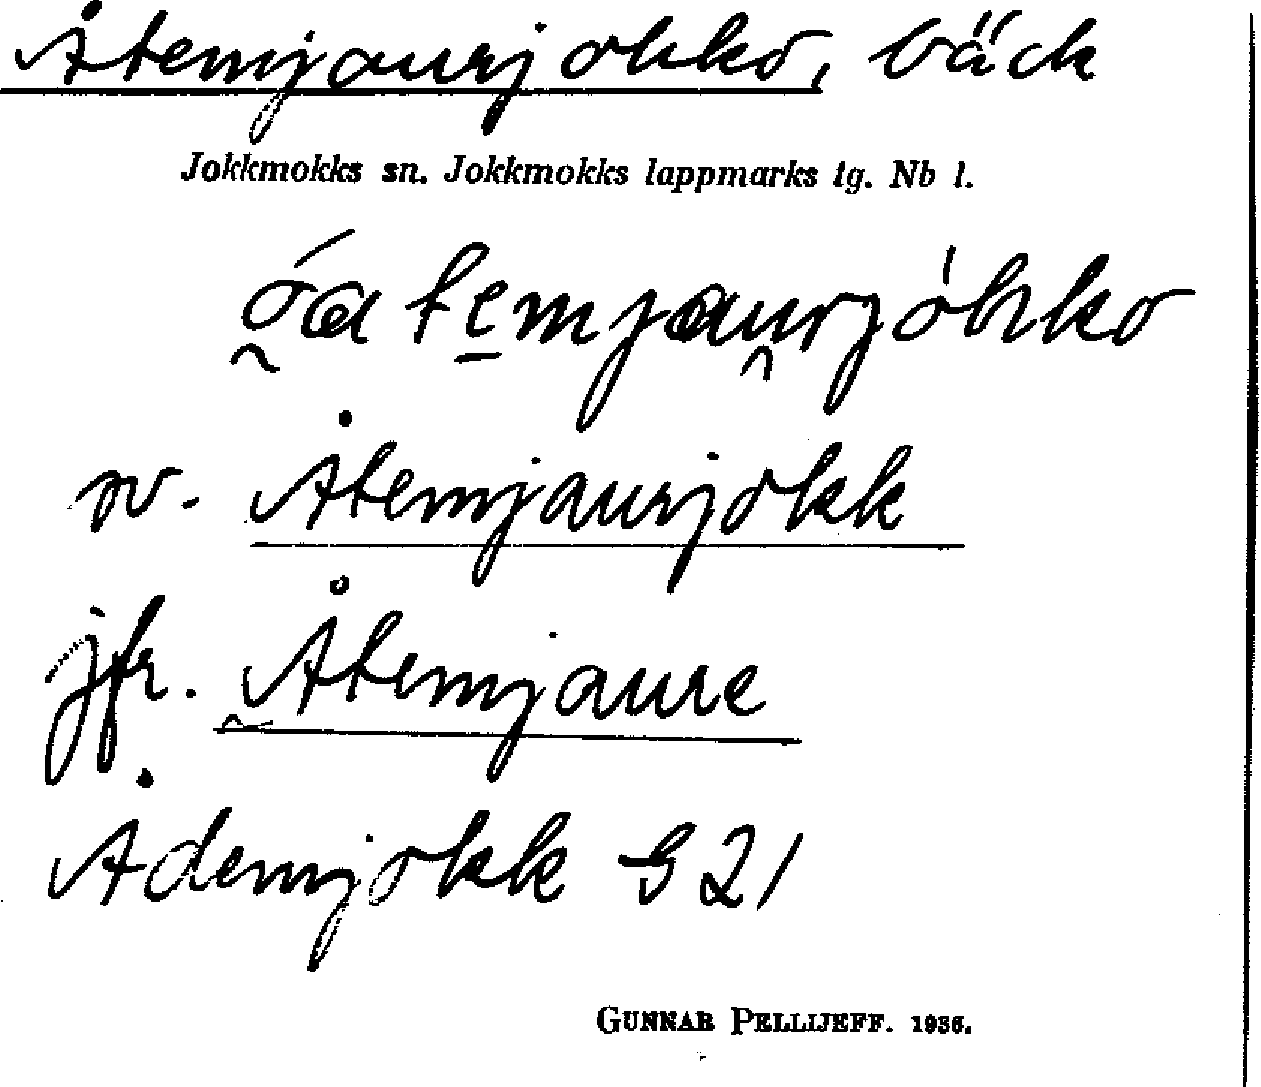 Åtemjaurjohko, bäck
Jokkmokks sn. Jokkmokks lappmarks tg. Nb l.
sv. Åtemjaurjokk
jfr. Åtemjaure
Ådemjokk G 21
GUNNAR PELLIJEFF. 1936.